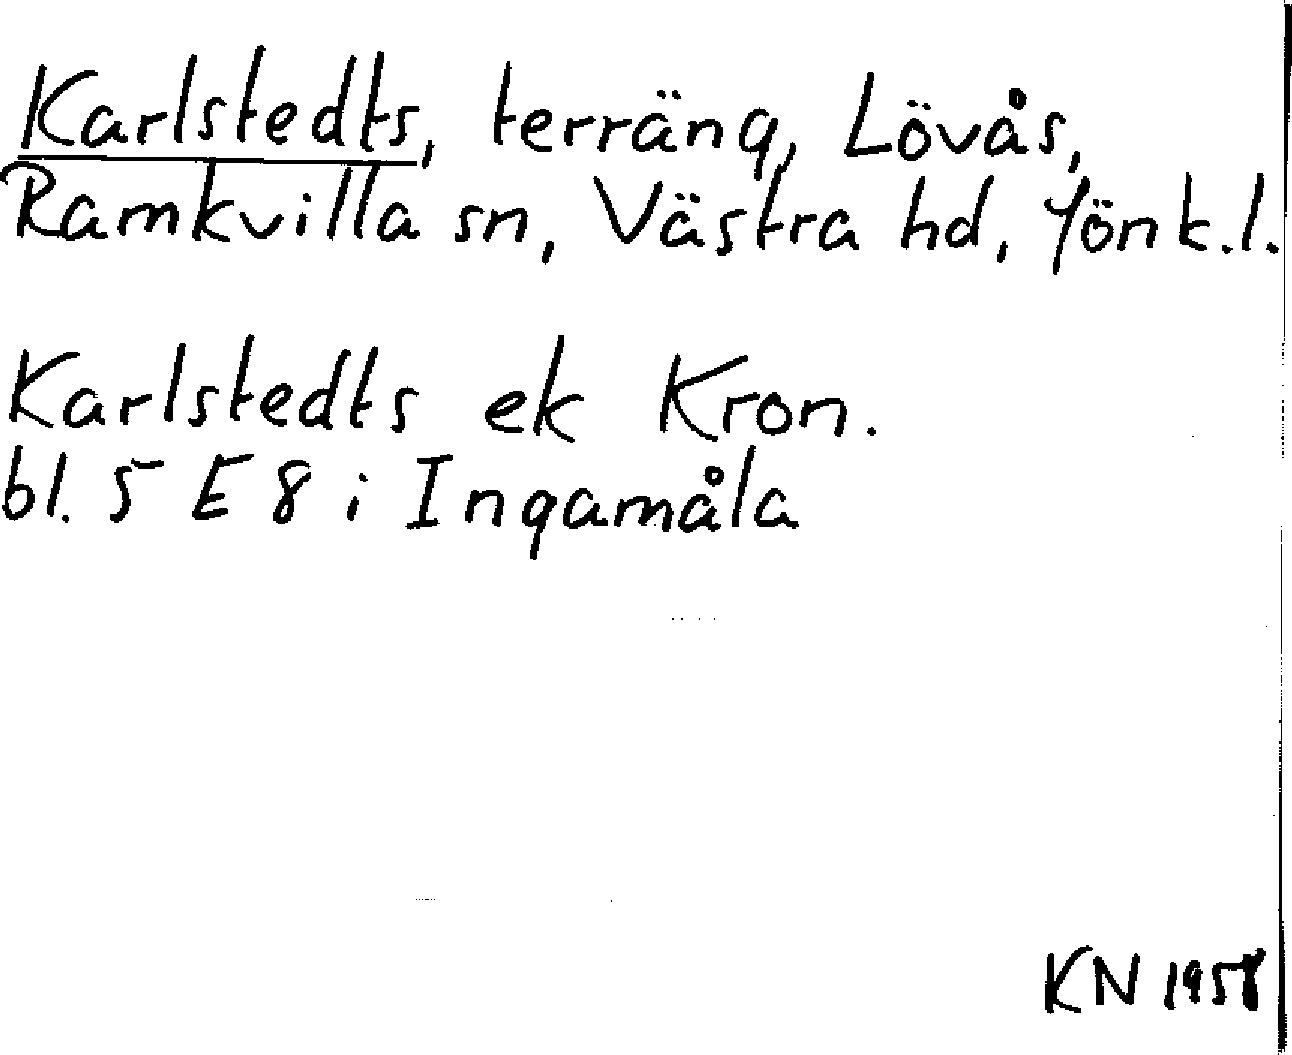 Karlstedts, terräng, Lövås,
Ramkvilla sn, Västra hd, Jönk.l.
Karlstedts ek Kron.
bl. 5 E 8 i Ingamåla
KN 1958